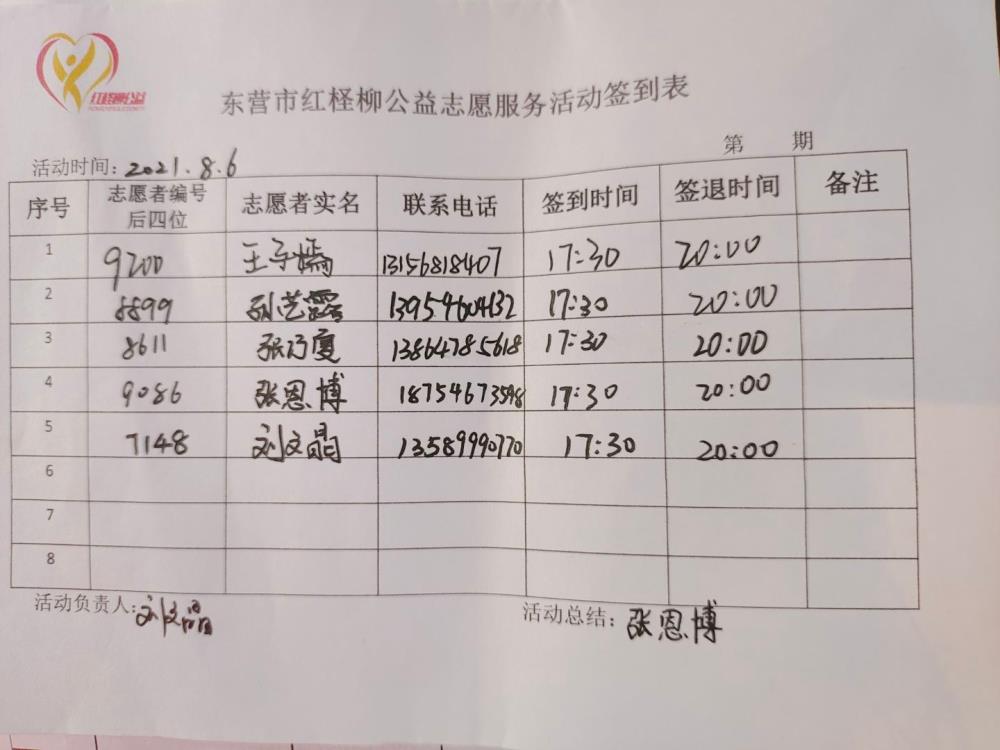 红柽柳公益
东营市红柽柳公益志愿服务活动签到表
第 期
活动时间：2021.8.6
序号 志愿者编号后四位 志愿者实名 联系电话 签到时间 签退时间 备注
1 9200 王子嫣 13156818407 17:30 20:00
2 8899 孙艺露 13954604132 17:30 20:00
3 8611 张乃夏 13864785618 17:30 20:00
4 9086 张恩博 18754673598 17:30 20:00
5 7148 刘文晶 13589990770 17:30 20:00
6
7
8
活动负责人：刘文晶 活动总结：张恩博